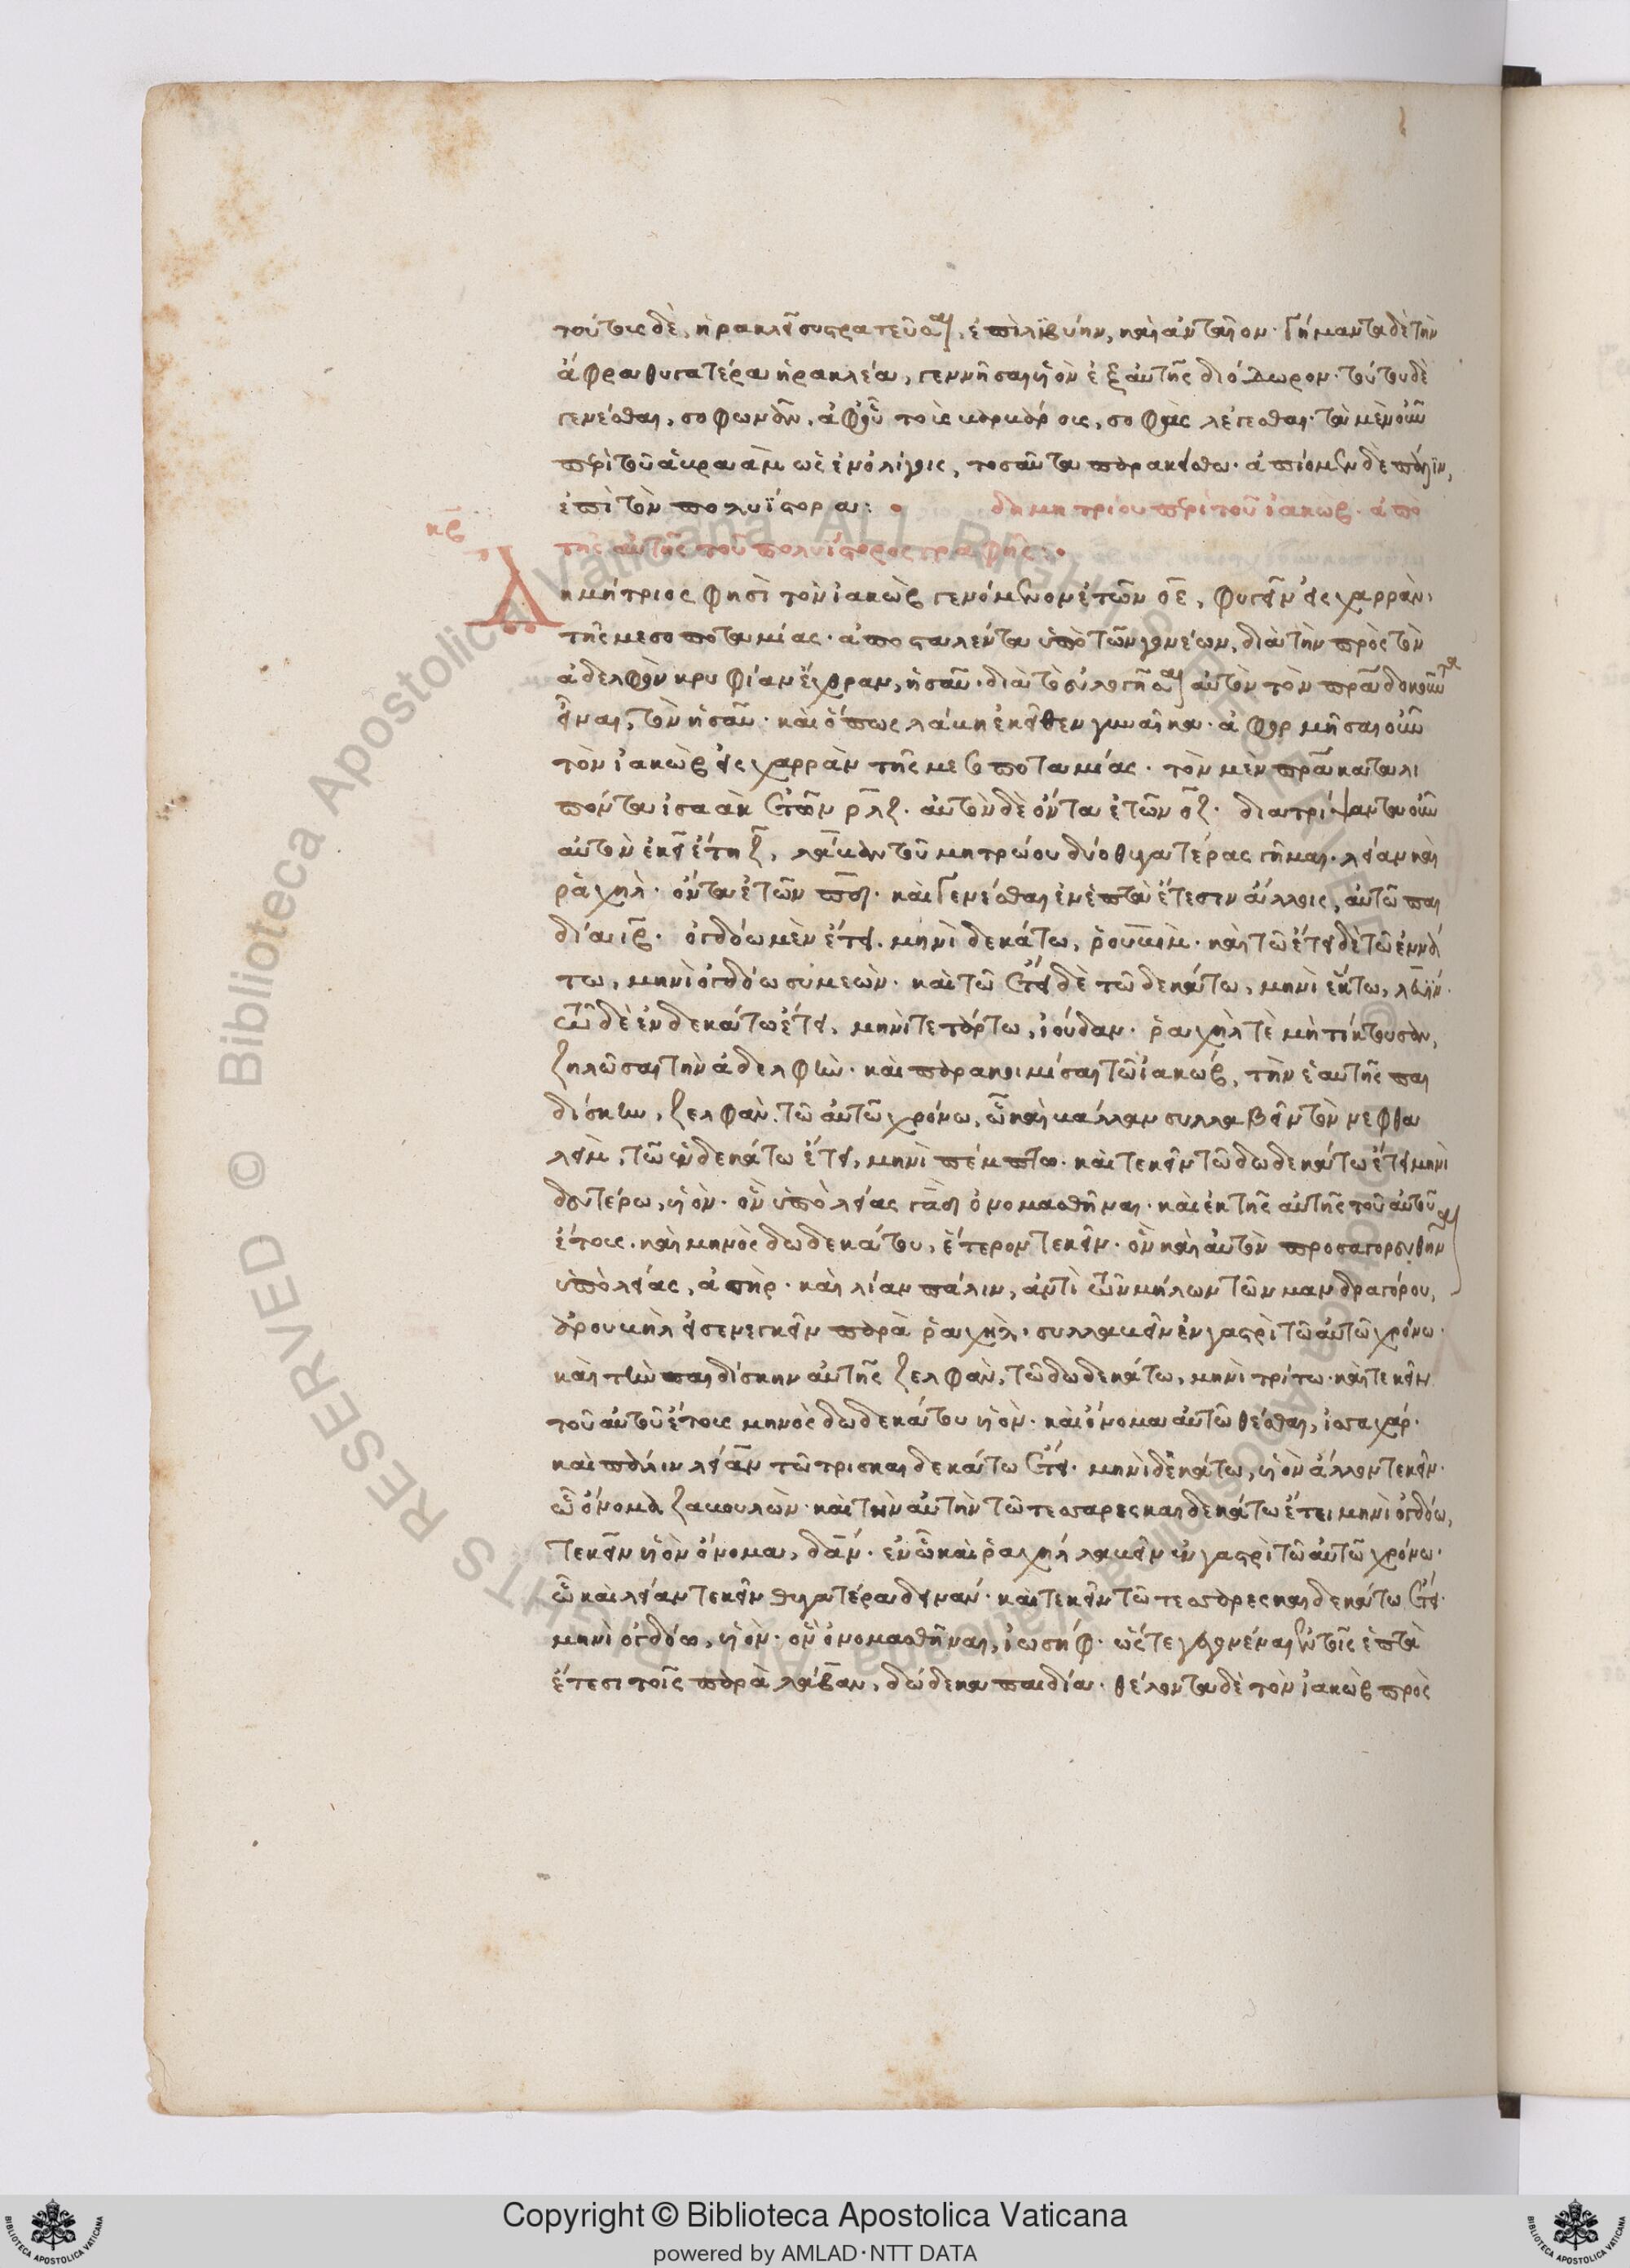 τούτους δὲ, ἡρακλεῖ συστρατεῦσαι, ἐπὶ λιβύην, καὶ ἀνταῖον· Γήμαντα δὲ τὴν
ἄφρα θυγατέρα ἡρακλέα, γεννῆσαι υἱὸν ἐξ αὐτῆς διόδωρον· τούτου δὲ
γενέσθαι, σοφωνᾶν, ἀφ' οὗ τοὺς βαρβάρους, σοφὰς λέγεσθαι· τὰ μὲν οὖν
περὶ τοῦ ἁβραὰμ ὡς ἐν ὀλίγοις, τοσαῦτα παρακείσθω· ἀπίομεν δὲ πάλιν,
ἐπὶ τὸν πολυΐστορα: • δημητρίου περὶ τοῦ ἰακὼβ· ἀπὸ
κβ
τῆς αὐτῆς τοῦ πολυΐστορος γραφῆς: •
Δημήτριος φησὶ τὸν ἰακὼβ γενόμενον ἐτῶν οε, φυγεῖν εἰς χαρρὰν,
τῆς μεσοποταμίας· ἀποσταλέντα ὑπὸ τῶν γονέων, διὰ τὴν πρὸς τὸν
ἀδελφὸν κρυφίαν ἔχθραν, ἡσαῦ· διὰ τὸ εὐλογῆσαι αὐτὸν τὸν πρα δοκοῦντα
εἶναι, τὸν ἡσαῦ· καὶ ὅπως λάβη ἐκεῖθεν γυναῖκα· ἀφορμῆσαι οὖν
τὸν ἰακὼβ εἰς χαρρὰν τῆς μεσοποταμίας· τὸν μὲν πρα καταλι
πόντα ἰσαὰκ ἐτῶν ρλζ· αὐτὸν δὲ ὄντα ἐτῶν οζ· διατρίψαντα οὖν
αὐτὸν ἐκεῖ ἔτη ζ, λάβαν τοῦ μητρώου δύο θυγατέρας γῆμαι· λείαν καὶ
ῥὰχηλ· ὄντα ἐτῶν πδ· καὶ Γενέσθαι ἐν ἑπτὰ ἔτεσιν ἄλλοις, αὐτῶ παι
δία ιβ· ὀγδόω μὲν ἔτει, μηνὶ δεκάτω, ῥουβὶμ· καὶ τῶ ἔτει δὲ τῶ ἐννά
τω, μηνὶ ὀγδόω συμεὼν· καὶ τῶ ἔτει δὲ τῶ δεκάτω, μηνὶ ἕκτω, λευΐν·
τῶ δὲ ἑνδεκάτω ἔτει, μηνὶ τετάρτω, ἰούδαν· ῥαχὴλ τὲ μὴ τίκτουσαν,
ζηλῶσαι τὴν ἀδελφὴν· καὶ παρακοιμίσαι τῶ ἰακώβ, τὴν ἑαυτῆς παι
δίσκην, ζελφὰν τῶ αὐτῶ χρόνω, ὧ καὶ βάλλαν συλλαβεῖν τὸν νεφθα
λεὶμ, τῶ ἑνδεκάτω ἔτει, μηνὶ πέμπτω· καὶ τεκεῖν τῶ δωδεκάτω ἔτει μηνὶ
δευτέρω, υἱὸν· ὃν ὑπὸ λείας γὰδ ὀνομασθῆναι· καὶ ἐκ τῆς αὐτῆς τοῦ αὐτοῦ
ἔτους· καὶ μηνὸς δωδεκάτου, ἕτερον τεκεῖν· ὃν καὶ αὐτὸν προσαγορευθῆναι
ὑπὸ λείας, ἀσὴρ· καὶ λίαν πάλιν, ἀντὶ τῶν μήλων τῶν μανδραγόρου,
ἃ ρουβὴλ εἰσενεγκεῖν παρὰ ῥαχὴλ· συλλαβεῖν ἐν γαστρὶ τῶ αὐτῶ χρόνω·
καὶ τὴν παιδίσκην αὐτῆς ζελφὰν, τῶ δωδεκάτω, μηνὶ τρίτω· καὶ τεκεῖν
τοῦ αὐτοῦ ἔτους μηνὸς δωδεκάτου υἱὸν· καὶ ὄνομα αὐτῶ θέσθαι, ἰσαχάρ·
καὶ πάλιν λείαν τῶ τρισκαιδεκάτω ἔτει· μηνὶ δεκάτω, υἱὸν ἄλλον τεκεῖν·
ὧ ὄνομα ζαβουλὼν· καὶ τὴν αὐτὴν τῶ τεσσαρεσκαιδεκάτω ἔτει μηνὶ ὀγδόω,
τεκεῖν υἱὸν ὄνομα, δάν· ἐν ὧ καὶ ῥαχηλ λαβεῖν ἐν γαστρὶ τῶ αὐτῶ χρόνω·
ὧ καὶ λείαν τεκεῖν θυγατέρα δειναν· καὶ τεκεῖν τῶ τεσσαρεσκαιδεκάτω ἔτει·
μηνὶ ὀγδόω, υἱὸν· ὃν ὀνομασθῆναι, ἰωσήφ· ὥστε γεγονέναι ἐν τοῖς ἑπτὰ
ἔτεσι τοῖς παρὰ λάβαν, δώδεκα παιδία· θέλοντα δὲ τὸν ἰακὼβ πρὸς
Copyright © Biblioteca Apostolica Vaticana
powered by AMLAD·NTT DATA